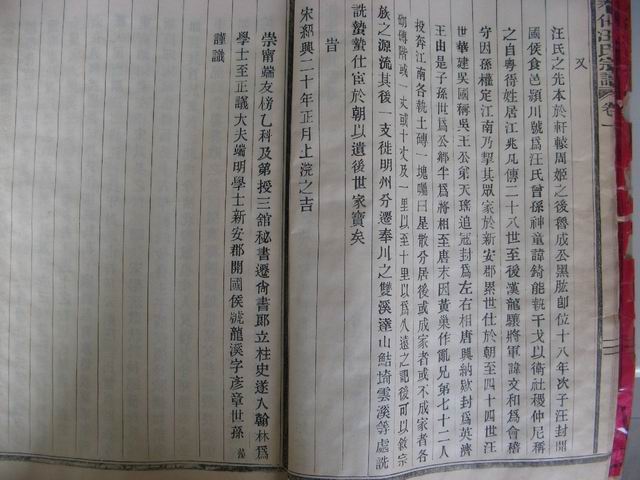 又
汪氏之先本於軒轅周姬之後魯成公黑肱卽位十八年次子汪封開
國侯食邑潁川號爲汪氏曾孫神童諱錡能執干戈以衛社稷仲尼稱
之自粤得姓居江兆凡傳二十八世至後漢龍驤將軍諱文和爲會稽
守因孫權定江南乃挈其眾家於新安郡累世仕於朝至四十四世汪
世華建吳國稱吳王公弟天瑤追冠封爲左右相唐興納欵封爲英濟
王由是子孫世爲公卿半爲將相至唐末因黃巢作亂兄弟七十二人
投奔江南各執土磚一塊囑曰星散分居後或成家者或不成家者各
傳階或一丈或十丈及一里以至十里以爲久遠之記後可以敘宗
族之源流其後一支徙明州分遷奉川之雙溪蓮山鮚埼雲溪等處詵
詵蟄蟄仕宦於朝以遺後世家寶矣
旹
宋紹興二十年正月上浣之吉
崇甯端友榜乙科及第授三舘秘書遷尙書郎立柱史遂入翰林爲
學士至正議大夫端明學士新安郡開國侯號龍溪字彥章世孫
謹識
汪氏宗譜 卷一